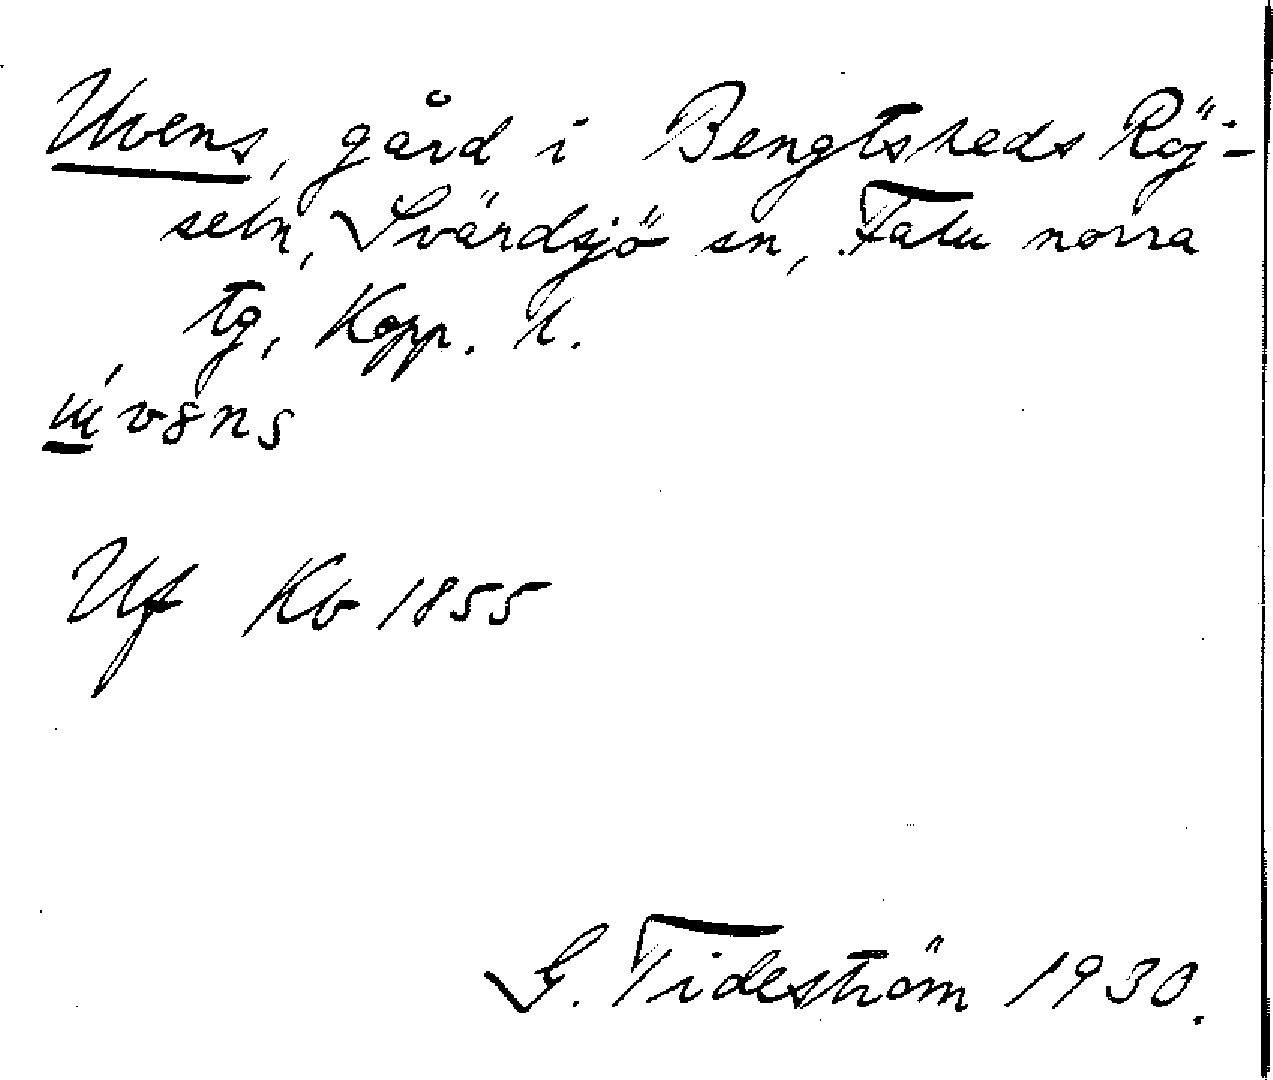 Uvens, gård i Bengtsheds Röj-
seln, Svärdsjö sn, Falu norra
tg, Kopp. l.
Uf Kb 1855
G. Tideström 1930.